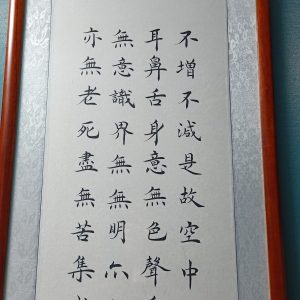 不增不減是故空中
耳鼻舌身意無色聲
無意識界無無明亦
亦無老死盡無苦集